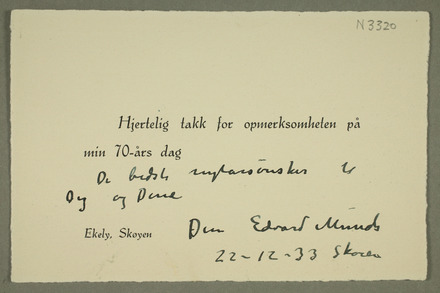 N 3320
Hjertelig takk for opmerksomheten på
min 70-års dag
De bedste nytårsønsker til
Dig og Dine
Din Edvard Munch
Ekely, Skøyen
22-12-33 Skøien